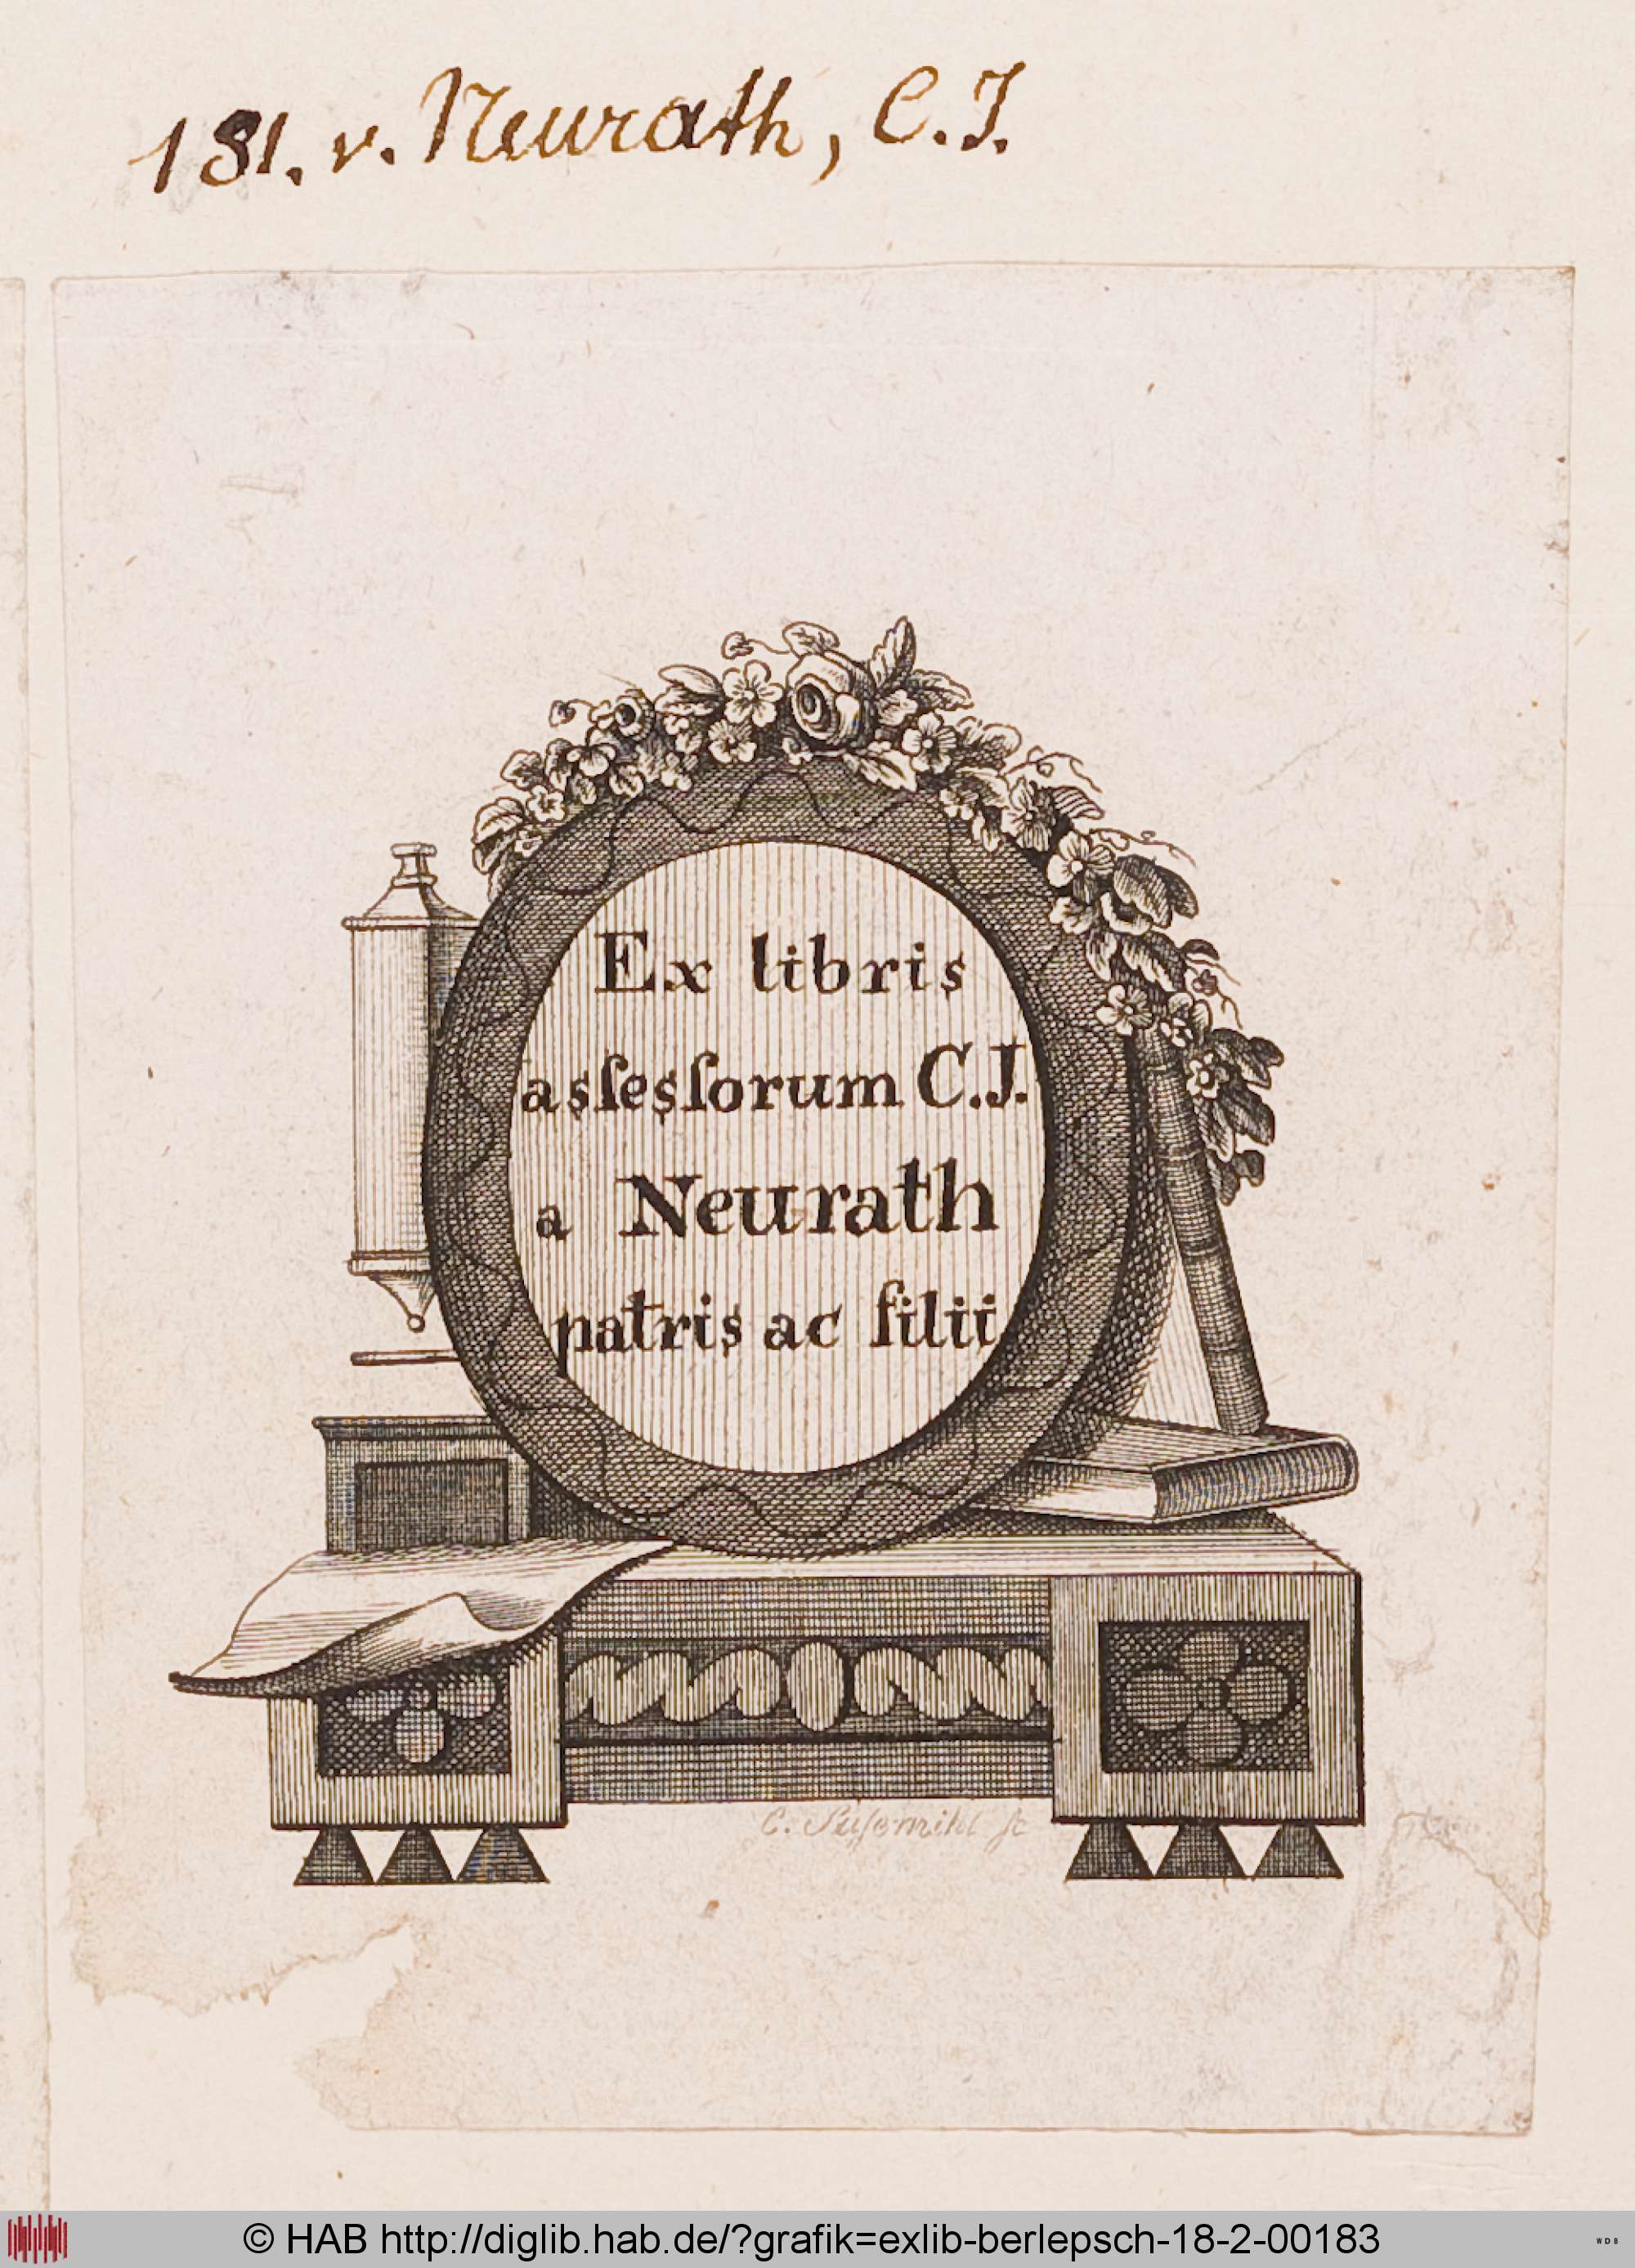 181. v. Neurath, C. J.
Ex libris
asſesſorum C.J.
a Neurath
patris ac filii
C. Suſemihl ſc
© HAB http://diglib.hab.de/?grafik=exlib-berlepsch-18-2-00183
WDB